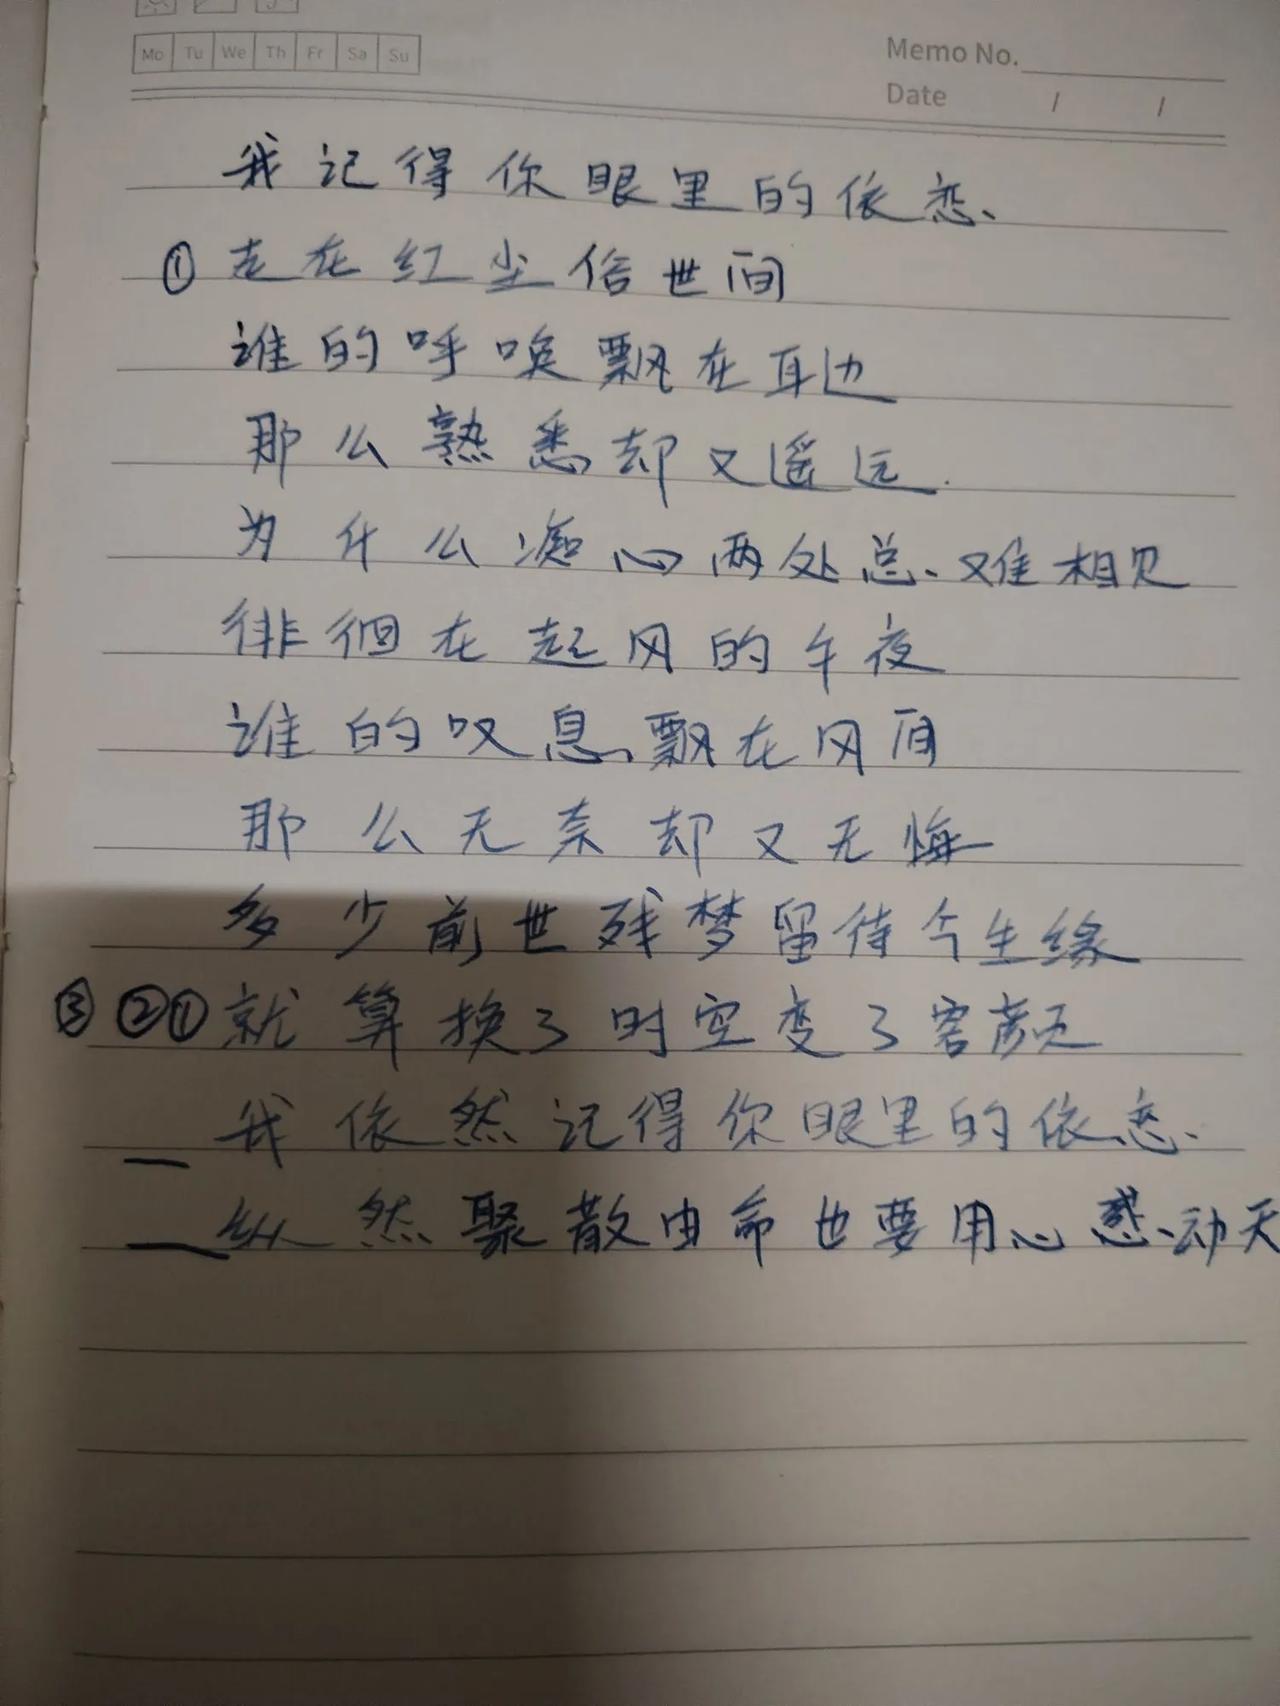 Mo Tu We Th Fr Sa Su
Memo No.
Date / /
我记得你眼里的依恋、
① 走在红尘俗世间
谁的呼唤飘在耳边
那么熟悉却又遥远.
为什么痴心两处总难相见
徘徊在起风的午夜
谁的叹息飘在风间
那么无奈却又无悔
多少前世残梦留待今生缘
③ ②① 就算换了时空变了容颜
我依然记得你眼里的依恋.
纵然聚散由命也要用心感动天